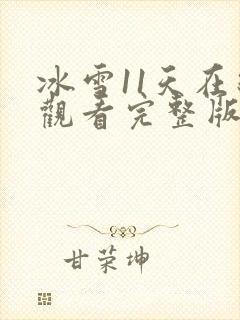 冰雪11天在
觀看完整版
甘荣坤